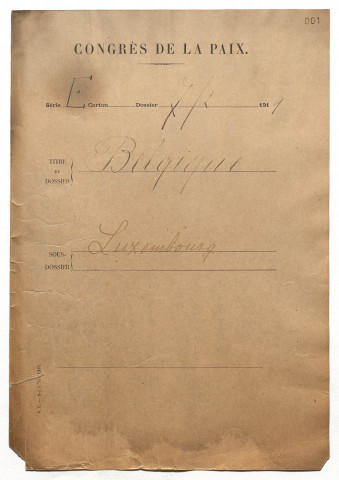 001
CONGRÈS DE LA PAIX.
Série E Carton Dossier 191
TITRE DU DOSSIER Belgique
SOUS-DOSSIER Luxembourg